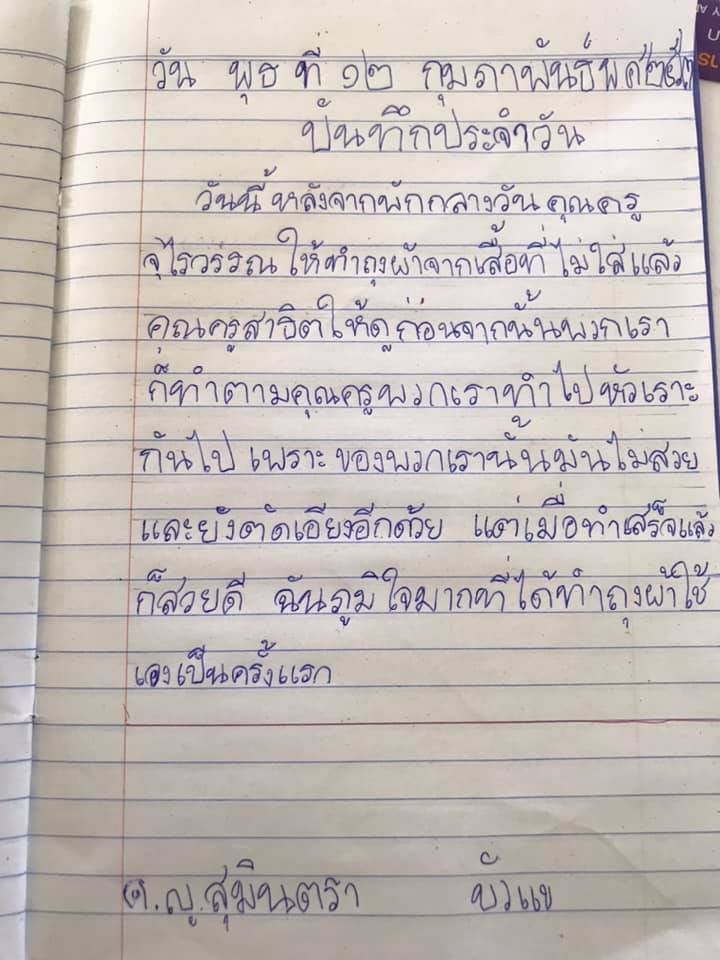 วัน พุธ ที่ ๑๒ กุมภาพันธ์ พศ๒๕๖๓
บันทึกประจำวัน
วันนี้ หลังจากพักกลางวัน คุณครู
จุไรวรรณ ให้ทำถุงผ้าจากเสื้อที่ไม่ใส่แล้ว
คุณครูสาธิตให้ดูก่อนจากนั้นพวกเรา
ก็ทำตามคุณครูพวกเราทำไปหัวเราะ
กันไป เพราะ ของพวกเรานั้นมันไม่สวย
และยังตัดเอียงอีกด้วย แต่เมื่อทำเสร็จแล้ว
ก็สวยดี ฉันภูมิใจมากที่ได้ทำถุงผ้าใช้
เองเป็นครั้งแรก
ด.ญ.สุมินตรา บัวแข